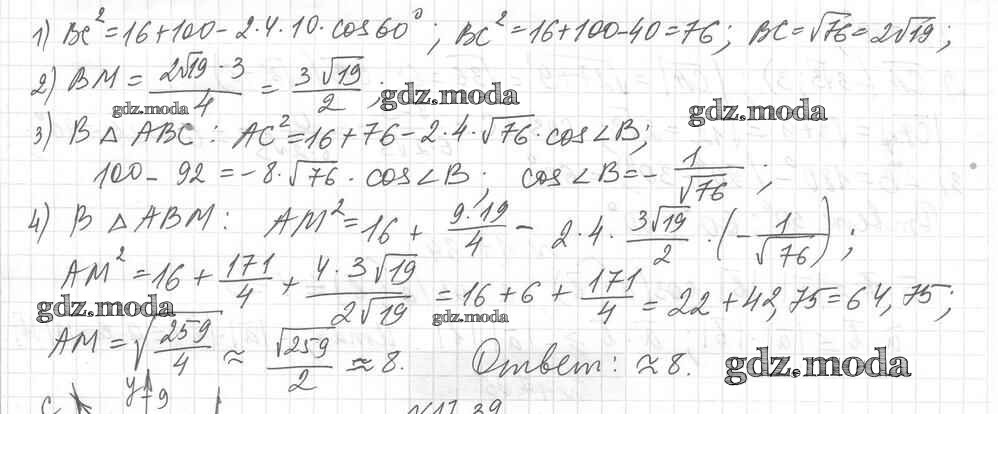 1) BC²=16+100-2·4·10·cos60°; BC²=16+100-40=76; BC=√76=2√19;
2) BM = 2√19·3/4 = 3√19/2;
gdz.moda gdz.moda gdz.moda
3) В △ ABC: AC²=16+76-2·4·√76·cos∠B;
100-92=-8·√76·cos∠B; cos∠B=-1/√76;
4) В △ABM: AM²=16+9·19/4-2·4·3√19/2·(-1/√76);
AM²=16+171/4+4·3√19/2√19=16+6+171/4=22+42,75=64,75;
gdz.moda gdz.moda
AM=√259/4≈√259/2≈8. Ответ: ≈8.
gdz.moda